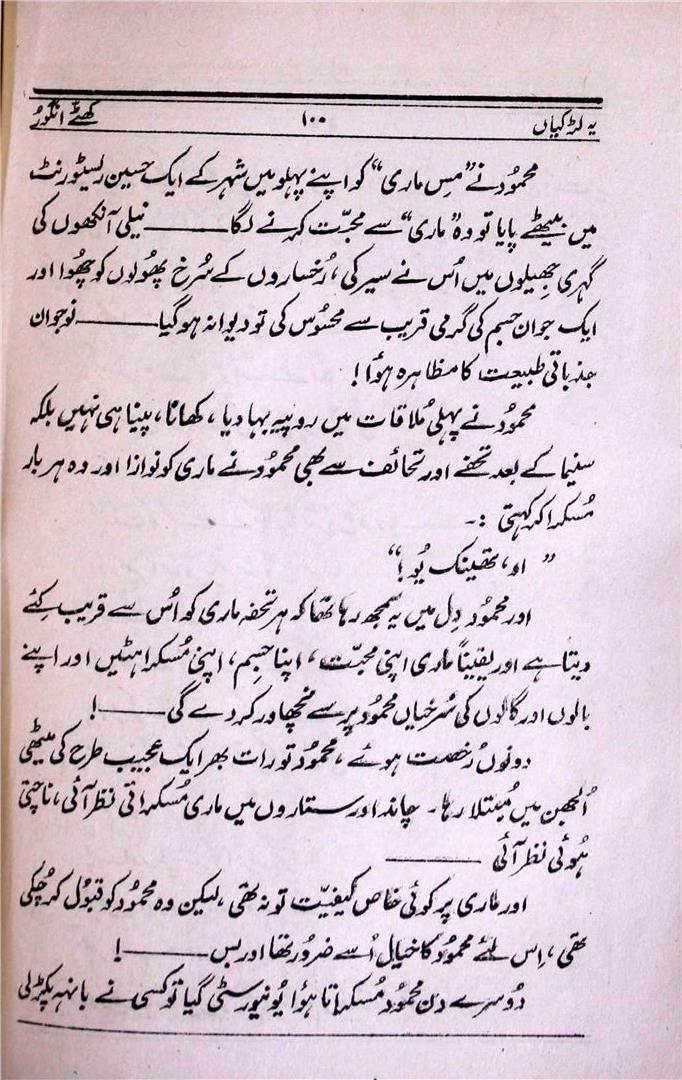 یہ لڑکیاں ۱۰۰ کھٹے انگور
محمُود نے ”مِس ماری“ کو اپنے پہلو میں شہر کے ایک حسین ریسٹورنٹ
میں بیٹھے پایا تو وہ ”ماری“ سے محبّت کرنے لگا ——— نیلی آنکھوں کی
گہری جھیلوں میں اُس نے سیر کی، رُخساروں کے سُرخ پھُولوں کو چھُوا اور
ایک جوان جسم کی گرمی قریب سے محسُوس کی تو دیوانہ ہو گیا ——— نوجوان
جذباتی طبیعت کا مظاہرہ ہوُا!
محمُود نے پہلی مُلاقات میں روپیہ بہا دیا، کھانا، پینا ہی نہیں بلکہ
سنیما کے بعد تحفے اور تحائف سے بھی محمُود نے ماری کو نوازا اور وہ ہر بار
مُسکرا کر کہتی :۔
”او، تھینک یُو!“
اور محمُود دِل میں یہ سمجھ رہا تھا کہ ہر تحفہ ماری کو اُس سے قریب کئے
دیتا ہے اور یقیناً ماری اپنی محبّت، اپنا جسم، اپنی مُسکراہٹیں اور اپنے
بالوں اور گالوں کی سُرخیاں محمُود پر سے نچھاور کر دے گی ———!
دونوں رُخصت ہوئے، محمُود تو رات بھر ایک عجیب طرح کی میٹھی
اُلجھن میں مُبتلا رہا۔ چاند اور ستاروں میں ماری مُسکراتی نظر آئی، ناچتی
ہُوئی نظر آئی ———
اور ماری پر کوئی خاص کیفیّت تو نہ تھی، لیکن وہ محمُود کو قبُول کر چُکی
تھی، اِس لئے محمُود کا خیال اُسے ضرُور تھا اور بس ———!
دُوسرے دن محمُود مُسکراتا ہوُا یُونیورسٹی گیا تو کسی نے بانہہ پکڑ لی